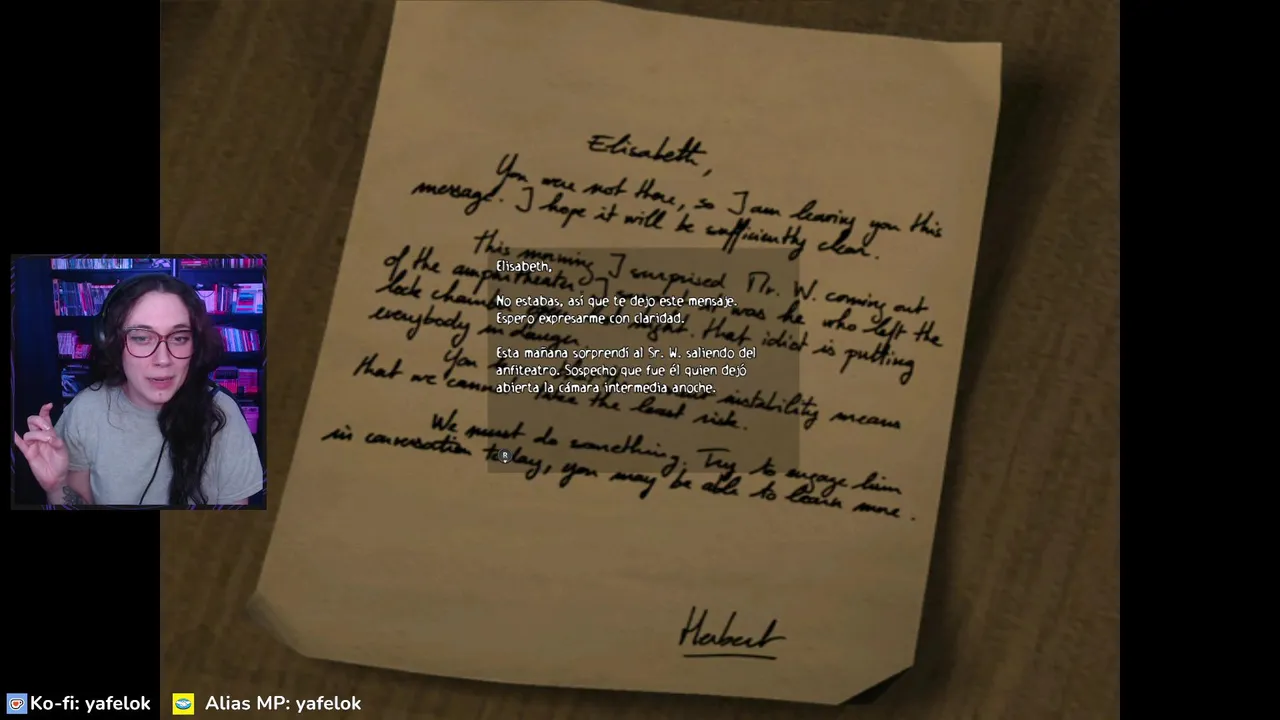 Elisabeth,
You were not there, so I am leaving you this
message. I hope it will be sufficiently clear.
This morning I surprised Mr. W. coming out
of the was he who left the
lock night. That idiot is putting
everybody in danger
You instability means
that we take the least risk.
We must do something. Try to engage him
in conversation today, you may be able to learn more.
Herbert
Elisabeth,
No estabas, así que te dejo este mensaje.
Espero expresarme con claridad.
Esta mañana sorprendí al Sr. W. saliendo del
anfiteatro. Sospecho que fue él quien dejó
abierta la cámara intermedia anoche.
R
Ko-fi: yafelok
Alias MP: yafelok